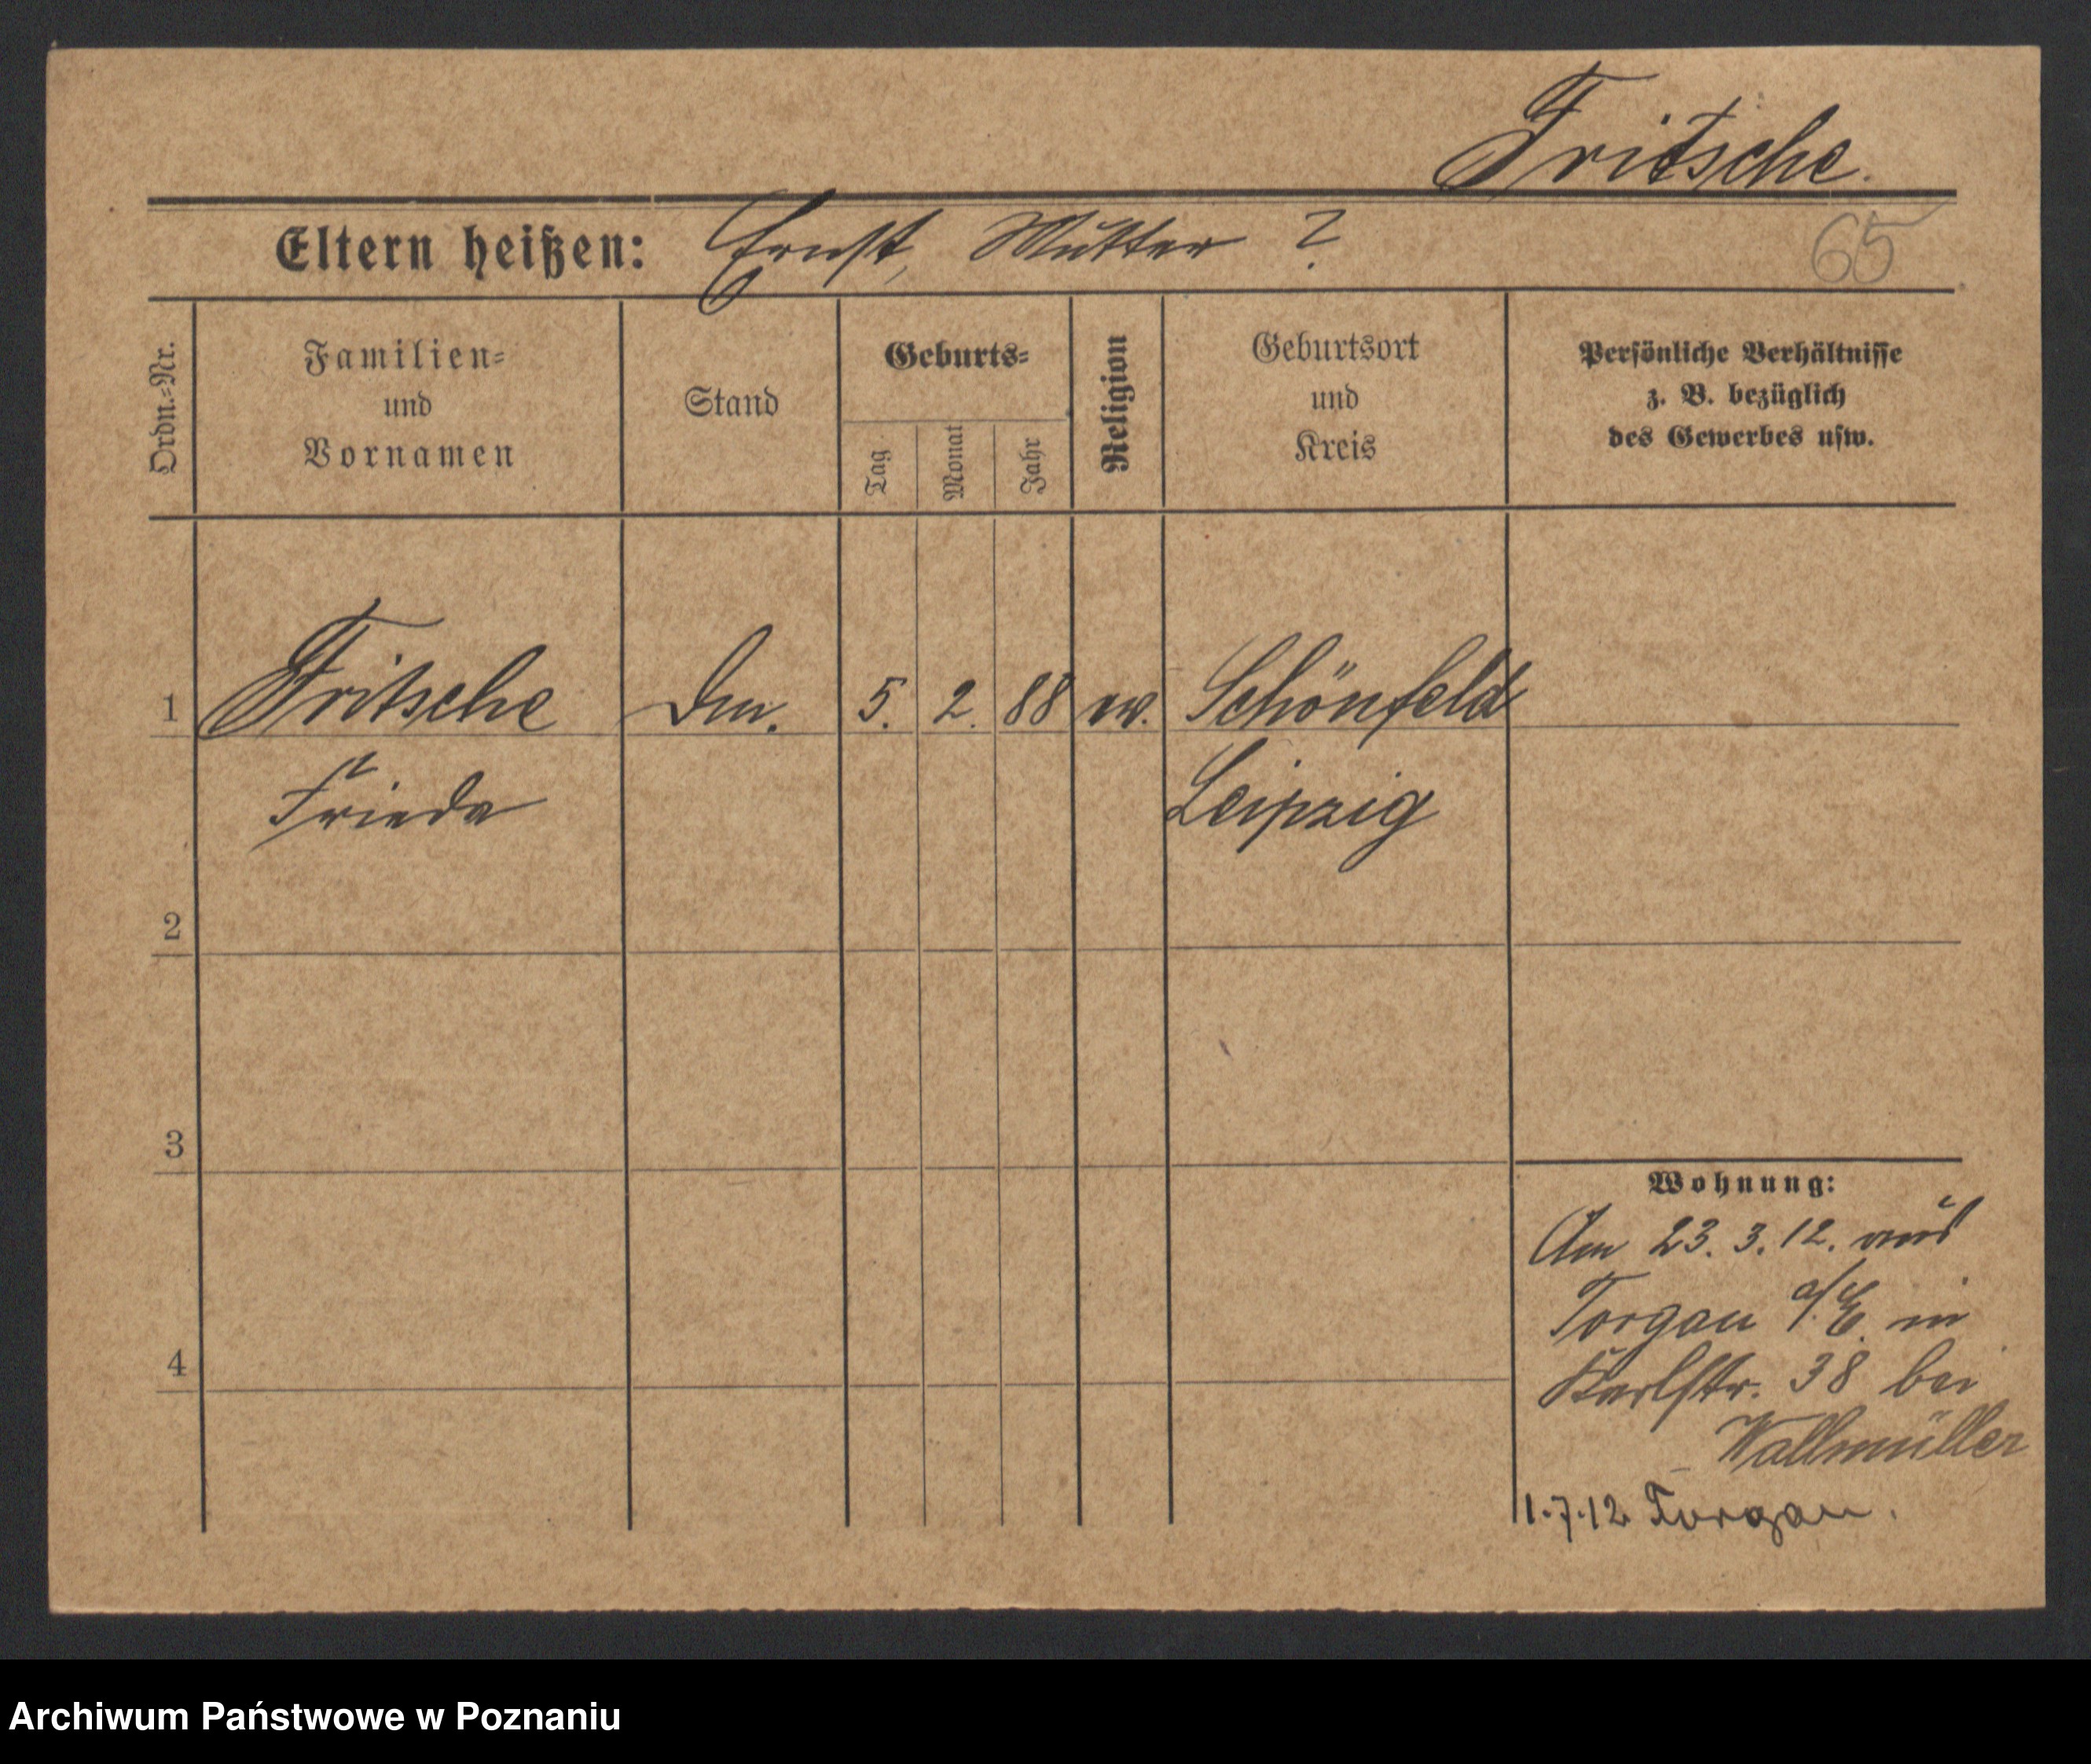 Fritsche.
Eltern heißen: Ernst, Mutter ?
65
Ordn.-Nr.
Familien-
und
Vornamen
Stand
Geburts-
Tag
Monat
Jahr
Religion
Geburtsort
und
Kreis
Persönliche Verhältnisse
z. B. bezüglich
des Gewerbes usw.
1 Fritsche 5. 2. 88 ev. Schönfeld
Frieda Leipzig
2
3
4
Wohnung:
Am 23. 3. 12. aus
Torgau a/E. in
Karlstr. 38 bei
Wallmüller
1.7.12 Torgau.
Archiwum Państwowe w Poznaniu